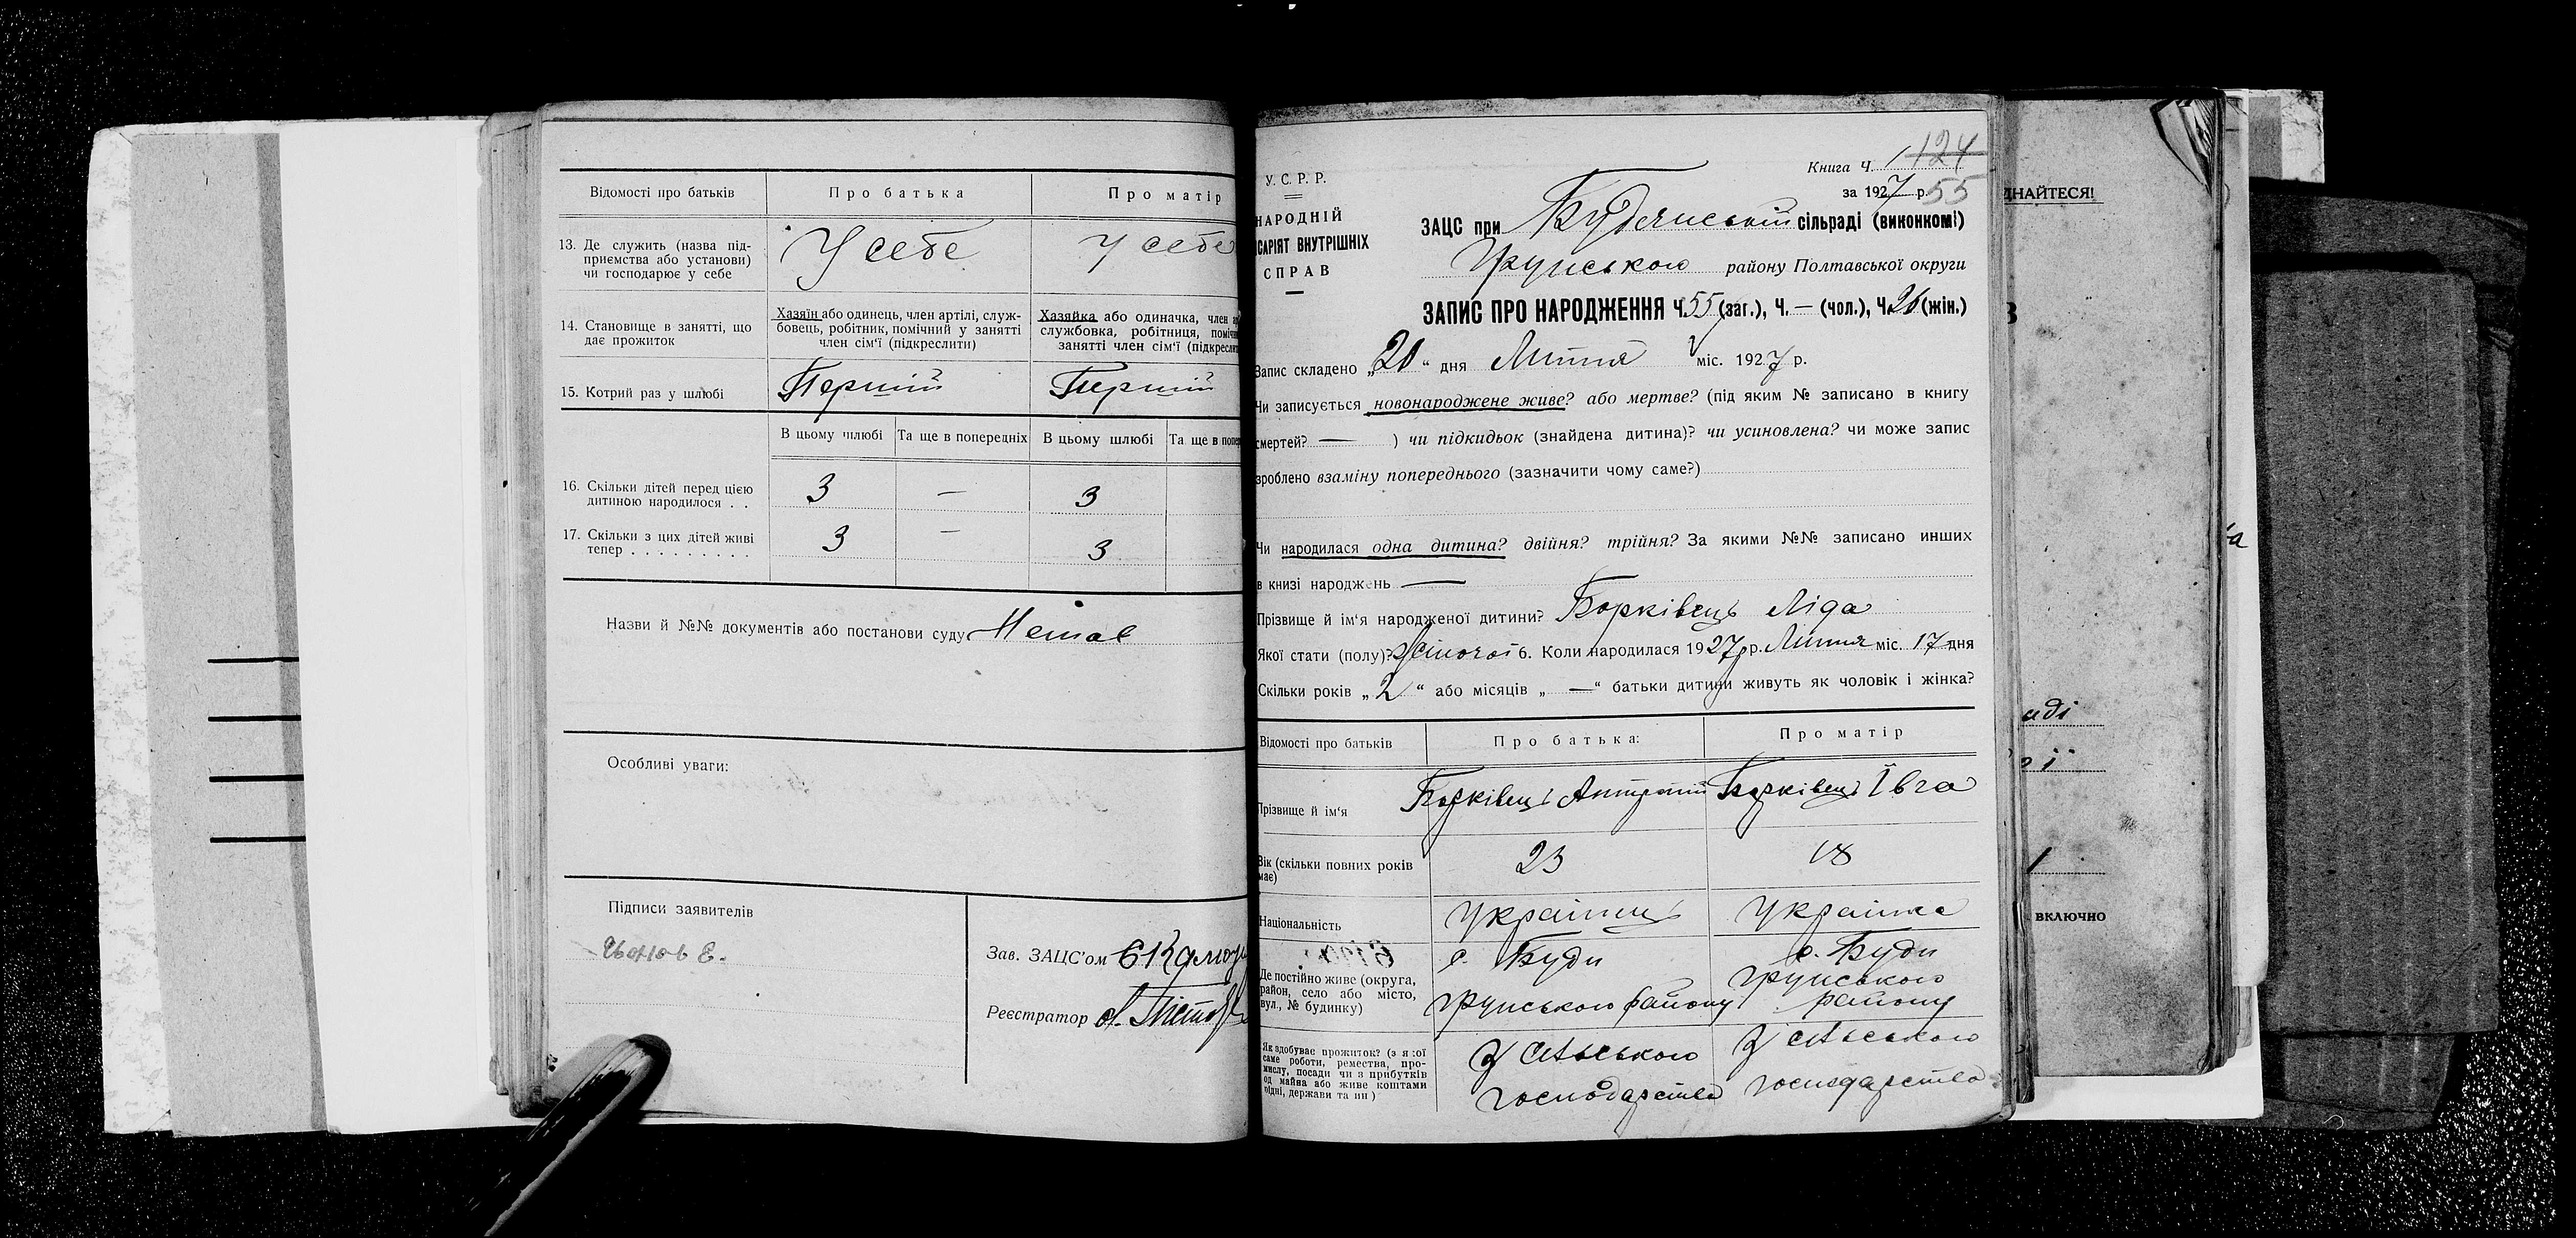 Відомості про батьків
Про батька
Про матір
13. Де служить (назва під-
приємства або установи)
чи господарює у себе
У себе
У себе
14. Становище в занятті, що
дає прожиток
Хазяїн або одинець, член артілі, служ-
бовець, робітник, помічний у занятті
член сім'ї (підкреслити)
Хазяйка або одиначка, член
службовка, робітниця,
занятті член сім'ї
15. Котрий раз у шлюбі
Перший
Перший
В цьому шлюбі
Та ще в попередніх
В цьому шлюбі
Та ще в
16. Скільки дітей перед цією
дитиною народилося . .
3
—
3
17. Скільки з цих дітей живі
тепер . . . . . . . . .
3
—
3
Назви й №№ документів або постанови суду Немає
Особливі уваги:
Підписи заявителів
Зав. ЗАЦС'ом
Реєстратор
Книга Ч. 1
124
за 1927 р.
55
У. С. Р. Р.
НАРОДНІЙ
ВНУТРІШНІХ
СПРАВ
ЗАЦС при сільраді (виконкомі)
Грунського району Полтавської округи
ЗАПИС ПРО НАРОДЖЕННЯ Ч. 55 (заг.), Ч. — (чол.), Ч. 26 (жін.)
Запис складено „20“ дня Липня міс. 1927 р.
Чи записується новонароджене живе? або мертве? (під яким № записано в книгу
смертей? — ) чи підкидьок (знайдена дитина)? чи усиновлена? чи може запис
зроблено взаміну попереднього (зазначити чому саме?)
Чи народилася одна дитина? двійня? трійня? За якими №№ записано инших
в книзі народжень —
Прізвище й ім'я народженої дитини? Борківець Ліда
Якої стати (полу)? Жіночої 6. Коли народилася 1927 р. Липня міс. 17 дня
Скільки років „2“ або місяців „—“ батьки дитини живуть як чоловік і жінка?
Відомості про батьків
Про батька:
Про матір
Прізвище й ім'я
Борківець
Борківець Івга
Вік (скільки повних років
має)
23
18
Національність
Українець
Українка
Де постійно живе (округа,
район, село або місто,
вул., № будинку)
с. Буди
Грунського району
с. Буди
Грунського
району
Як здобуває прожиток? (з якої
саме роботи, ремества, про-
мислу, посади чи з прибутків
од майна або живе коштами
рідні, держави та ин)
З сільського
господарства
З сільського
господарства
ДНАЙТЕСЯ!
ВКЛЮЧНО